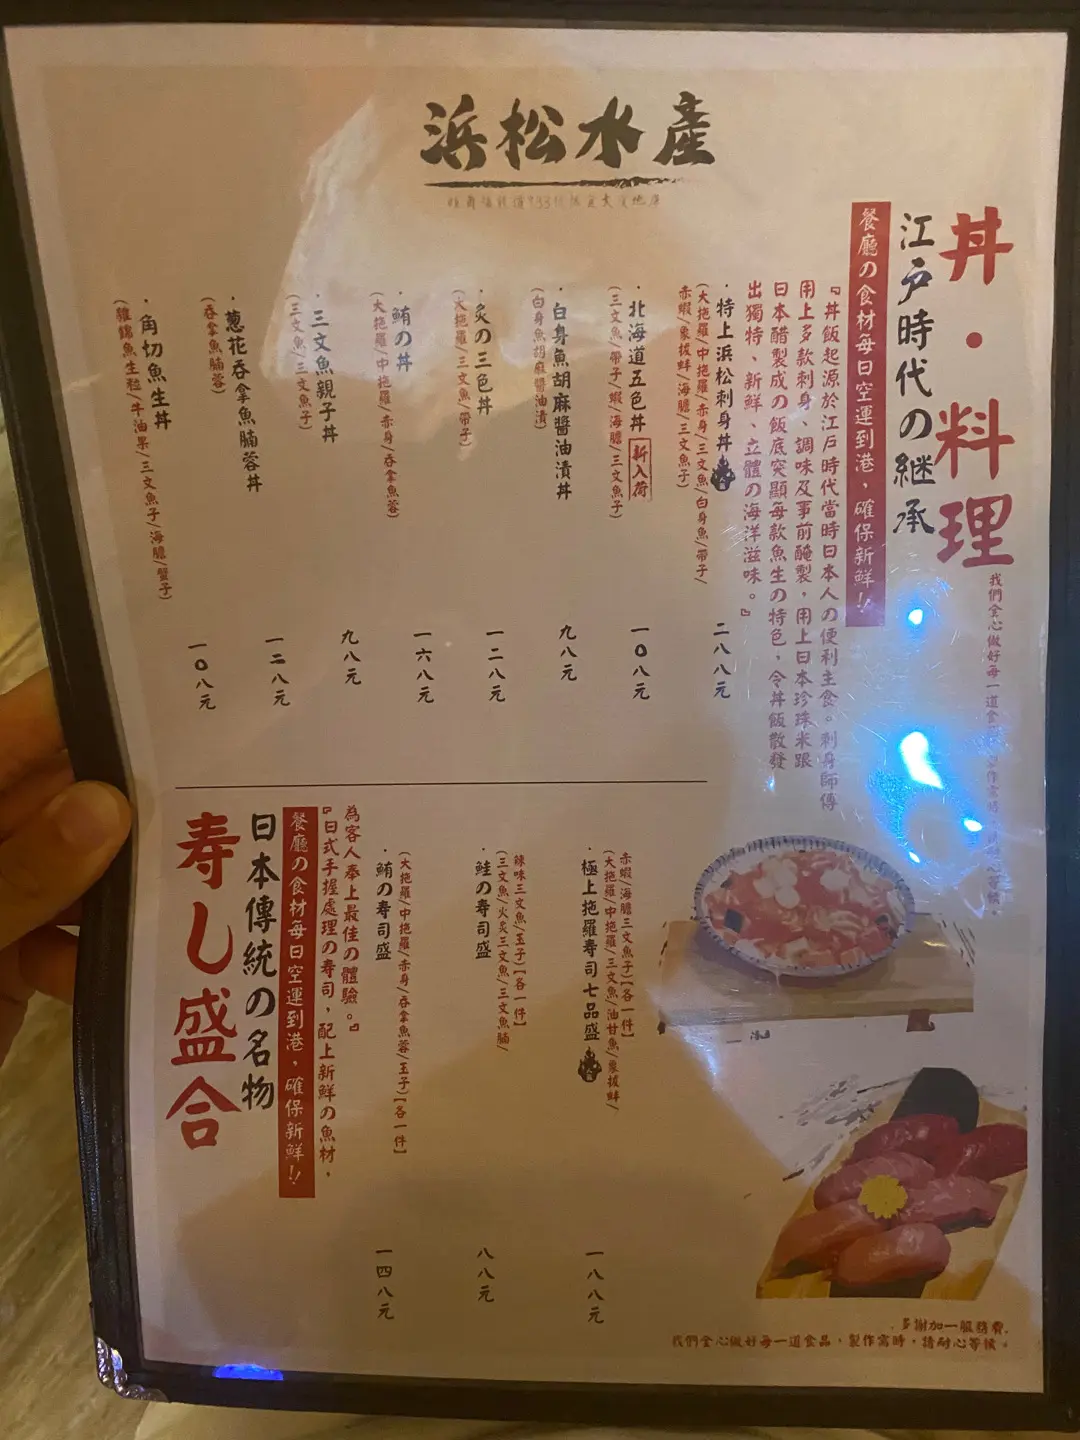 浜松水產
丼・料理
江戶時代の継承
餐廳の食材每日空運到港，確保新鮮!!
『丼飯起源於江戶時代當時日本人の便利主食。刺身師傅
用上多款刺身、調味及事前醃製，用上日本珍珠米跟
日本醋製成の飯底突顯每款魚生の特色，令丼飯散發
出獨特、新鮮、立體の海洋滋味。』
・特上浜松刺身丼
(大拖羅/中拖羅/赤身/三文魚/白身魚/帶子/
赤蝦/象拔蚌/海膽/三文魚子)
二八八元
・北海道五色丼
新入荷
(三文魚/帶子/蝦/海膽/三文魚子)
一〇八元
・白身魚胡麻醬油漬丼
(白身魚胡麻醬油漬)
九八元
・炙の三色丼
(大拖羅/三文魚/帶子)
一二八元
・鮪の丼
(大拖羅/中拖羅/赤身/吞拿魚蓉)
一六八元
・三文魚親子丼
(三文魚/三文魚子)
九八元
・蔥花吞拿魚腩蓉丼
(吞拿魚腩蓉)
一二八元
・角切魚生丼
(雜錦魚生粒/牛油果/三文魚子/海膽/蟹子)
一〇八元
・極上拖羅寿司七品盛
(大拖羅/中拖羅/三文魚/油甘魚/象拔蚌/
赤蝦/海膽三文魚子)【各一件】
一八八元
・鮭の寿司盛
(三文魚/火炙三文魚/三文魚腩/
辣味三文魚/玉子)【各一件】
八八元
・鮪の寿司盛
(大拖羅/中拖羅/赤身/吞拿魚蓉/玉子)【各一件】
一四八元
『日式手握處理の寿司，配上新鮮の魚材，
為客人奉上最佳の體驗。』
餐廳の食材每日空運到港，確保新鮮!!
日本傳統の名物
寿し盛合
多謝加一服務費.
我們全心做好每一道食品，製作需時，請耐心等候。